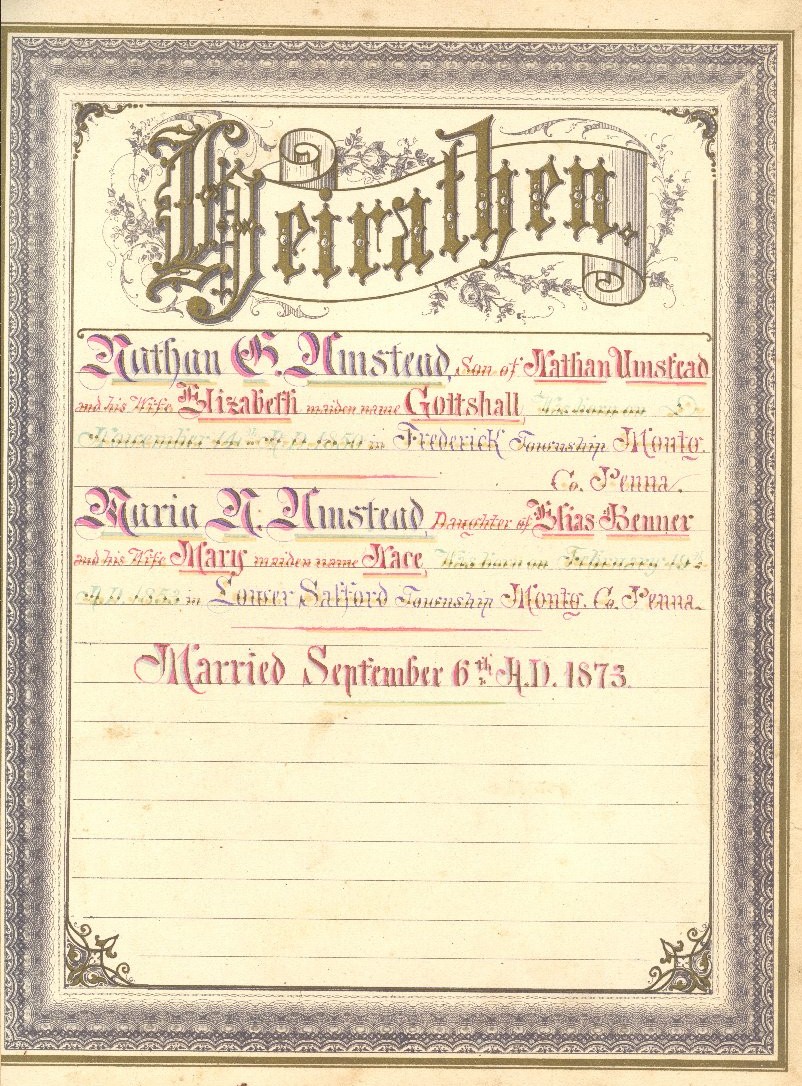 Heirathen.
Nathan G. Umstead, Son of Nathan Umstead
and his Wife Elizabeth maiden name Gottshall, Was born on
November 14th A.D. 1850 in Frederick Township Montg.
Co. Penna.
Maria N. Umstead, Daughter of Elias Benner
and his Wife Mary maiden name Nace, Was born on February 19th
A.D. 1853 in Lower Salford Township Montg. Co. Penna.
Married September 6th A.D. 1873.